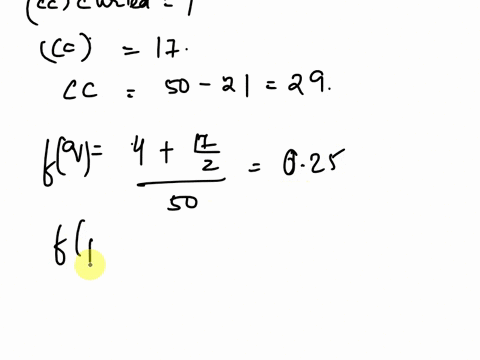 = 1
(Cc) = 17.
CC = 50 - 21 = 29.
f(q) = (4 + 17/2) / 50 = 0.25
f(